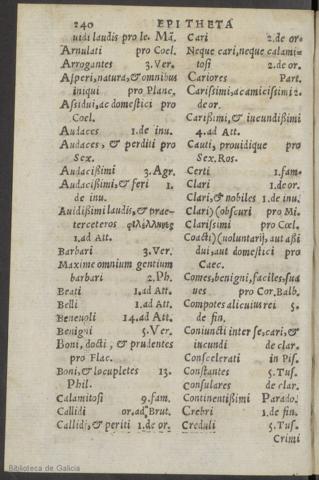 240 EPITHETA
uidi laudis pro le. Mā.
Arnulati pro Coel.
Arrogantes 3. Ver.
Asperi, natura, & omnibus
iniqui pro Planc.
Assidui, ac domestici pro
Coel.
Audaces 1. de inu.
Audaces, & perditi pro
Sex.
Audacißimi 3. Agr.
Audacißimi, & feri 1.
de inu.
Auidißimi laudis, & prae-
terceteros φιλέλληνες
1. ad Att.
Barbari 3. Ver.
Maxime omnium gentium
barbari 2. Ph.
Beati 1. ad Att.
Belli 1. ad Att.
Beneuoli 14. ad Att.
Benigni 5. Ver.
Boni, docti, & prudentes
pro Flac.
Boni, & locupletes 13.
Phil.
Calamitosi 9. fam.
Callidi or. ad Brut.
Callidi, & periti 1. de or.
Cari 2. de or.
Neque cari, neque calami-
tosi 2. de or.
Cariores Part.
Carissimi, ac amicissimi 2.
de or.
Carißimi, & iucundißimi
4. ad Att.
Cauti, prouidique pro
Sex. Ros.
Certi 1. fam.
Clari 1. de or.
Clari, & nobiles 1. de inu.
Clari) (obscuri pro Mi.
Clarissimi pro Coel.
Coacti) (voluntarij, aut aßi
dui, aut domestici pro
Caec.
Comes, benigni, faciles, sua
ues pro Cor. Balb.
Compotes alicuius rei 5.
de fin.
Coniuncti inter se, cari, &
iucundi de clar.
Conscelerati in Pis.
Constantes 5. Tus.
Consulares de clar.
Continentißimi Parado.
Crebri 1. de fin.
Creduli 5. Tus.
Crimi
Biblioteca de Galicia